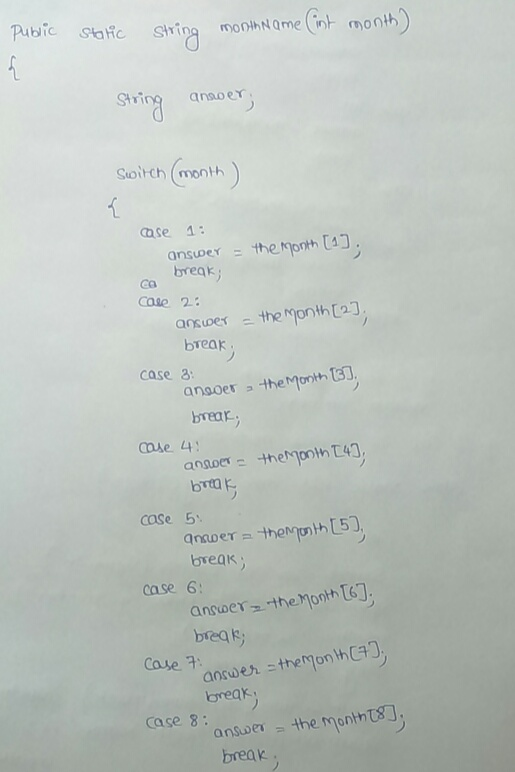 Public static string monthName(int month)
{
string answer;
switch(month)
{
case 1:
answer = theMonth[1];
break;
ca
case 2:
answer = theMonth[2];
break;
case 3:
answer = theMonth[3];
break;
case 4:
answer = theMonth[4];
break;
case 5:
answer = theMonth[5];
break;
case 6:
answer = theMonth[6];
break;
case 7:
answer = theMonth[7];
break;
case 8:
answer = theMonth[8];
break;